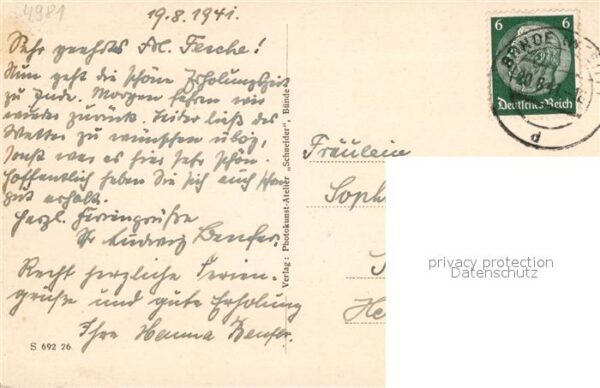 4981
19.8.1941.
Sehr geehrtes Frl. Fesche!
Nun geht die schöne Erholungszeit
zu Ende. Morgen fahren wir
wieder zurück. Leider ließ das
Wetter zu wünschen übrig,
sonst war es hier sehr schön.
Hoffentlich haben Sie sich auch
gut erholt.
Herzl. Feriengrüße
Ludwig
Recht herzliche Ferien-
grüße und gute Erholung
Ihre Hanna
S 692 26
Verlag: Photokunst-Atelier „Schneider", Bünde
6 6
Deutsches Reich
BÜNDE
20.8.41
d
Fräulein
Soph
He
privacy protection
Datenschutz